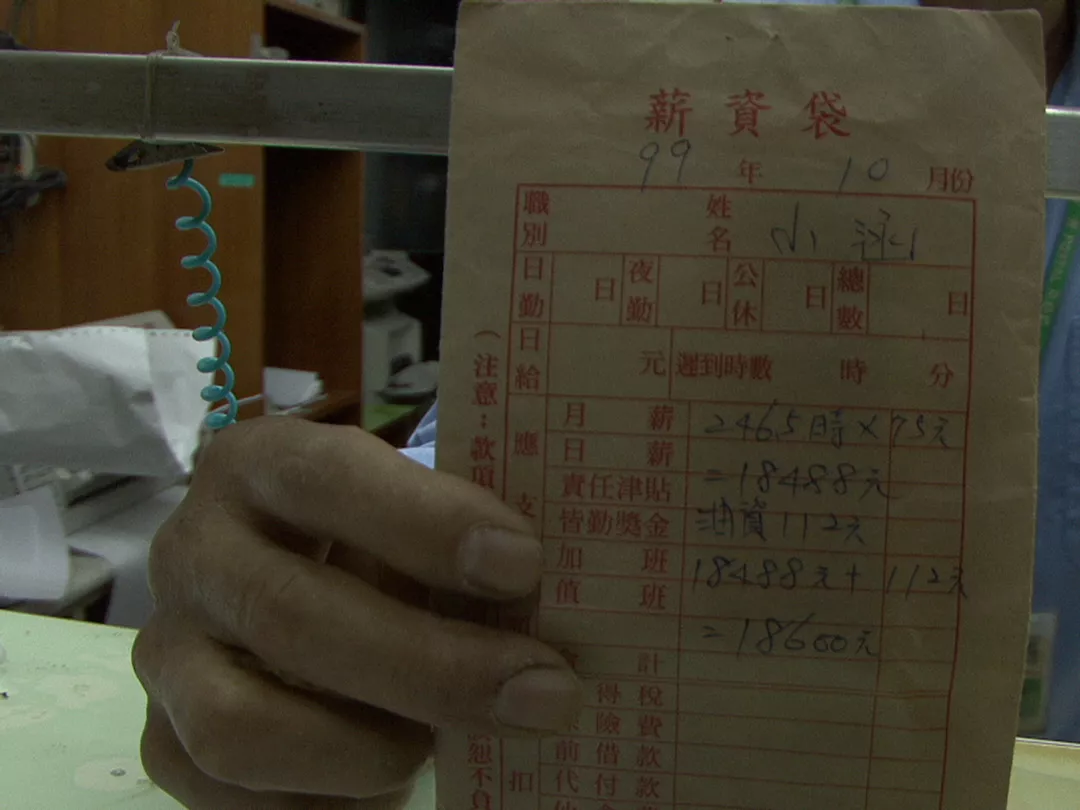 薪資袋
99年10月份
職別 姓名 小涵
日勤 日 夜勤 日 公休 日 總數 日
日給 元 遲到時數 時 分
(注意:款項
應支
月薪 246.5時×75元
日薪 =18488元
責任津貼
皆勤獎金 油資112元
加班 18488元+112元
值班
=18600元
計
得稅
險費
前借款
代付款
扣
恕不負